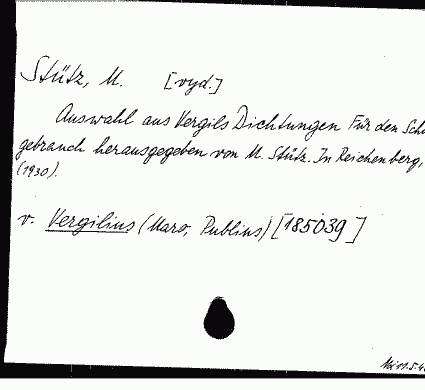 Stütz, M. [vyd.]
Auswahl aus Vergils Dichtungen Für den Sch
gebrauch herausgegeben von M. Stütz. In Reichenberg,
(1930).
v. Vergilius (Maro, Publius) [185039]